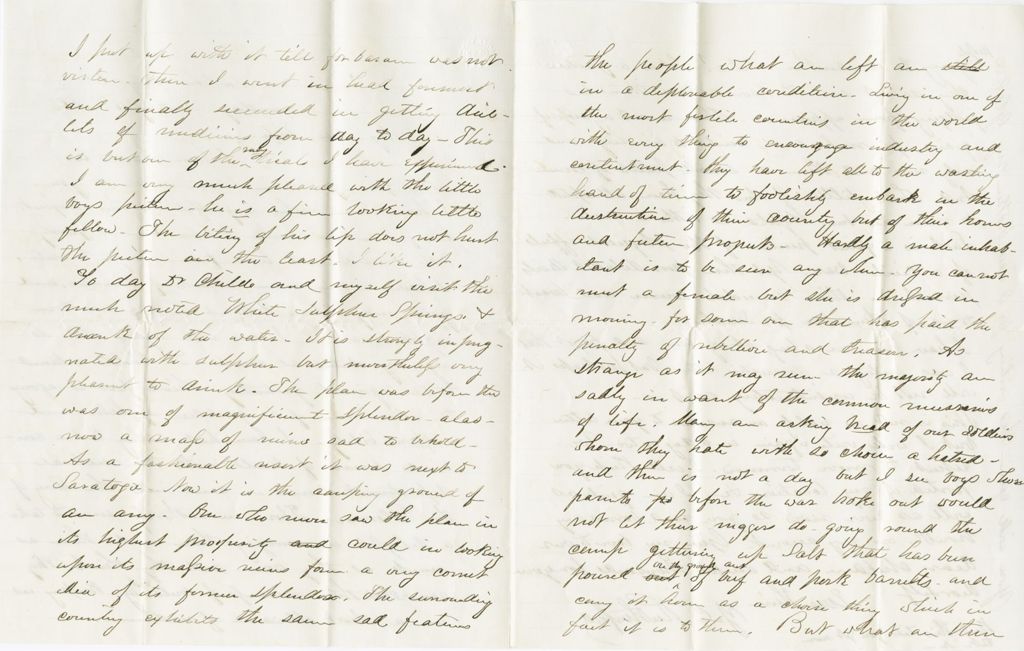 I put up with it till forbearance was not
virtue. Then I went in head foremost
and finally succeeded in getting driblets
of medicine from day to day - This
is but one of the my trials I have experienced.
I am very much pleased with the little
boys picture. he is a fine looking little
fellow. The biting of his lip does not hurt
the picture in the least. I like it.
To day Dr Childs and myself visit the
much noted White Sulphur Springs &
drank of the water - It is strongly impreg-
nated with sulphur but nevertheless very
pleasant to drink. The place was before the
was one of magnificent splendor alas -
now a mass of ruins sad to behold -
As a fashionable resort it was next to
Saratoga. Now it is the camping ground of
an army. One who never saw the place in
its highest prosperity and could in looking
upon its massive ruins form a very correct
idea of its former splendor. The surrounding
country exhibits the same sad features
the people what are left are still
in a deplorable condition. Living in one of
the most fertile countries in the world
with every thing to encourage industry and
contentment. they have left all to the wasting
hand of time to foolishly embark in the
destruction of their country but of their homes
and future prospects - Hardly a male inhab-
itant is to be seen any where. You can not
meet a female but she is dressed in
morning. for some one that has paid the
penalty of rebellion and treason. As
strange as it may seem the majority are
sadly in want of the common necessaries
of life. Many are asking bread of our soldiers
whom they hate with so choice a hatred -
and there is not a day but I see boys whose
parents before the war broke out would
not let their niggers do - going round the
camp gettering up salt that has been
poured out on the ground out of beef and pork barrells. and
carry it home as a choise thing which in
fact it is to them. But what are these